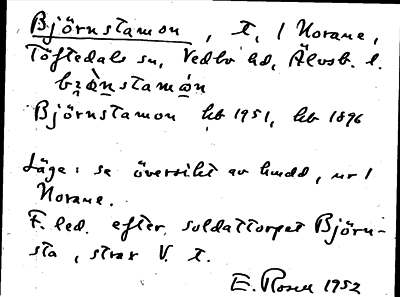 Björnstamon, t, / Norane,
Töftedals sn, Vedbo hd, Älvsb. l.
Björnstamon hb 1951, hb 1896
Läge: se översikt av hmdd, nr 1
Norane.
F. led. efter soldattorpet Björn-
sta, strax V. t.
E. Rosen 1952